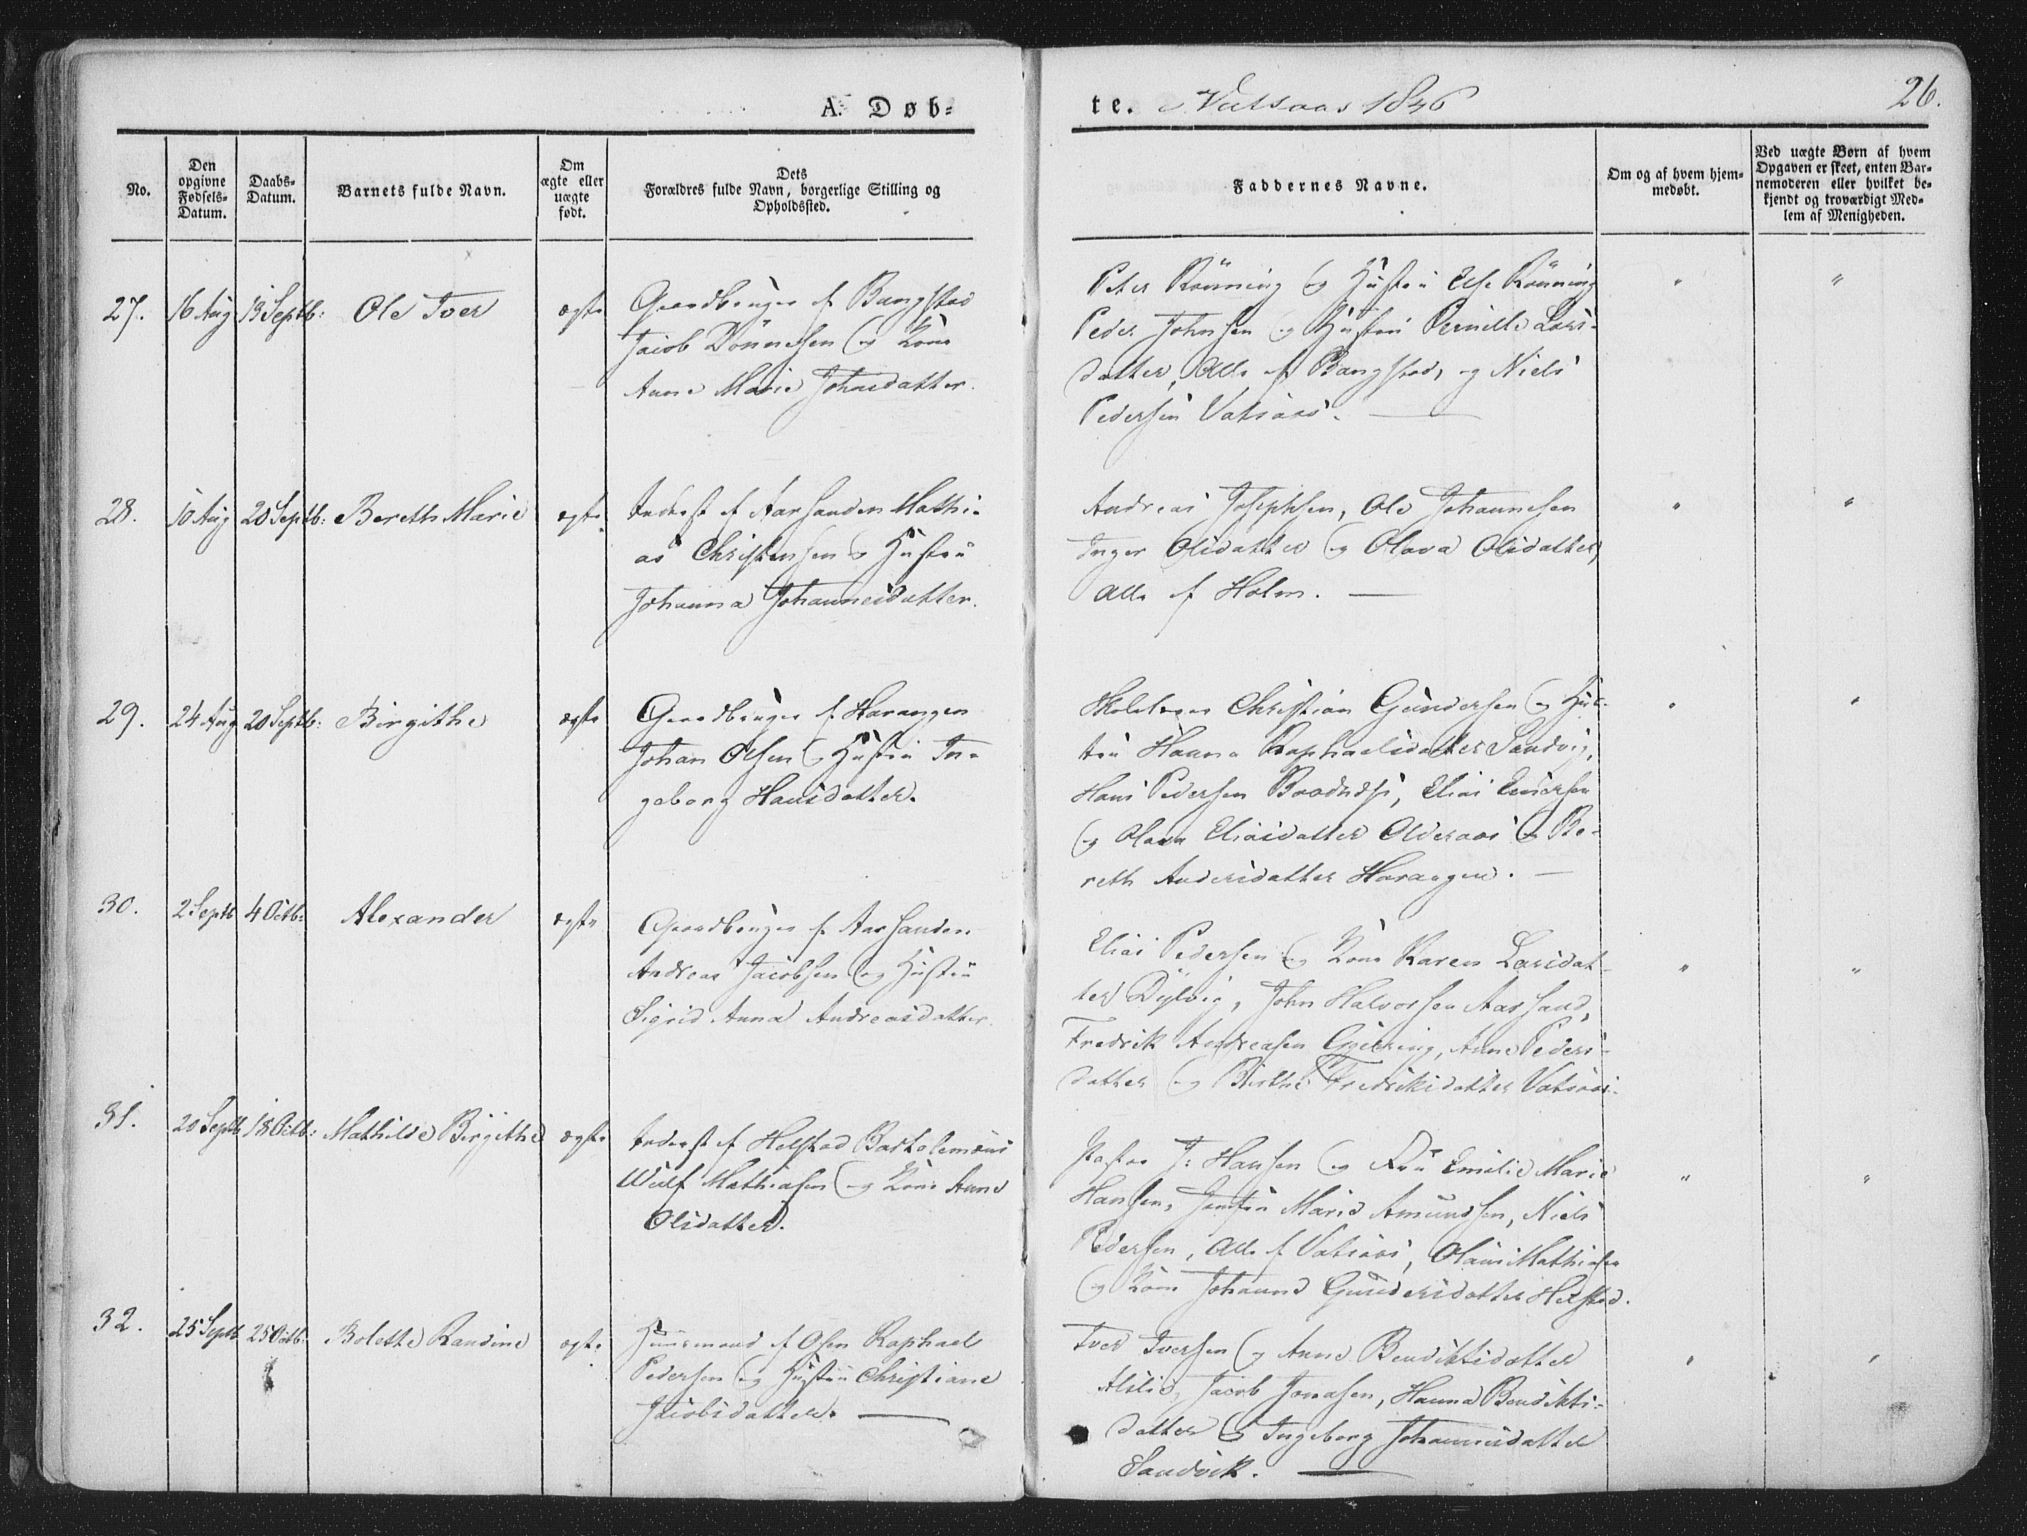 A. Døb-
te. Vatsaas 1846
26.
No.
Den opgivne Fødsels-Datum.
Daabs-Datum.
Barnets fulde Navn.
Om ægte eller uægte født.
Dets Forældres fulde Navn, borgerlige Stilling og Opholdssted.
Faddernes Navne.
Om og af hvem hjem-medøbt.
Ved uægte Børn af hvem Opgaven er skeet, enten Bar-nemoderen eller hvilket be-kjendt og troværdigt Med-lem af Menigheden.
27. 16 Aug 13 Septb: Ole Iver ægte
Gaardbruger af Bangstad
Jacob Dönnesen og Kone
Anne Marie Johnsdatter.
Peter Rönning og Hustru Else Rönning
Peder Johnsen og Hustru Pernille Lars-
datter, Alle af Bangstad, og Niels
Pedersen Vatsaas.
28. 10 Aug 20 Septb: Bereth Marie ægte
Inderst af Aarsanden Mathi-
as Christensen og Hustru
Johanna Johannesdatter.
Andreas Josephsen, Ole Johannesen
Inger Olsdatter og Olava Olsdatter,
Alle af Holm.
29. 24 Aug 20 Septb: Birgithe ægte
Gaardbruger af Harangen
Johan Olsen og Hustru In-
geborg Hansdatter.
Christian Gundersen og Hus-
tru Hanna Raphaelsdatter Sandvig,
Hans Pedersen, Elias
og Olava Eliasdatter Olderaas og Be-
reth Andersdatter Harangen.
30. 2 Septb 4 Octb: Alexander ægte
Gaardbruger af Aarsanden
Andreas Jacobsen og Hustru
Sigrid Anna Andreasdatter.
Elias Pedersen og Kone Karen Larsdat-
ter, John Halvorsen Aarsand,
Fredrik Andreasen, Anne Peders-
datter og Birthe Fredriksdatter Vatsaas.
31. 20 Septb 18 Octb: Mathilde Birgithe ægte
Inderst af Helstad Bartolemæus
Wulf Mathiasen og Kone Anne
Olsdatter.
Pastor J: Hansen og Fru Emilie Marie
Hansen, Jomfru Marie Amundsen, Niels
Pedersen, Alle af Vatsaas, Olaus Mathiasen
og Kone Johanna Gundersdatter Helstad.
32. 25 Septb 25 Octb: Bolette Randine ægte
Huusmand af Osen Raphael
Pedersen og Hustru Christiane
Jacobsdatter.
Iver Iversen og Anne Benediktsdatter
Jacob Jonasen, Hanna Benedikts-
datter og Ingeborg Johannesdatter
Sandvik.